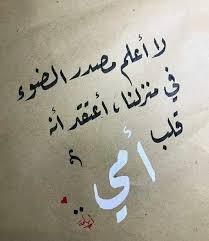 لا أعلم مصدر الضوء
في منزلنا، أعتقد أنه
قلب
أمي ..